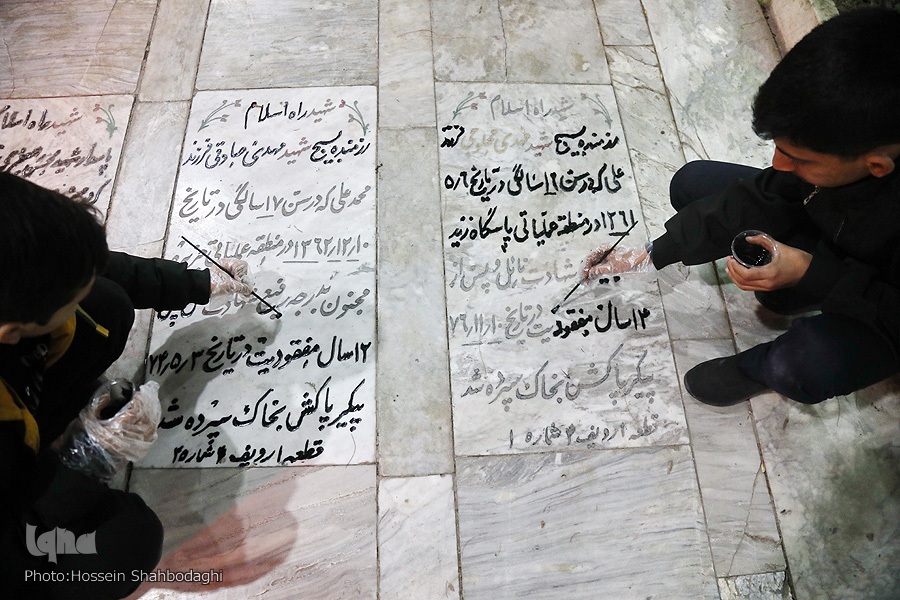 شهید راه اسلام
رزمنده بسیج شهید مهدی
فرزند
علی که در سن ۱۹ سالگی در تاریخ ۵/۶
۱۳۶۱ در منطقه عملیاتی پاسگاه زید
شهادت نائل و پس از
۱۴ سال مفقودیت در تاریخ ۷۶/۱۱/۱۰
پیکر پاکش بخاک سپرده شد
قطعه ۱ ردیف ۴ شماره ۱
شهید راه اسلام
رزمنده بسیج شهید مهدی صادقی فرزند
محمد علی که در سن ۱۷ سالگی در تاریخ
۱۳۶۲/۱۲/۱۰ در منطقه عملیاتی
مجنون بدرجه رفیع شهادت
۱۲ سال مفقودیت در تاریخ ۷۴/۵/۳
پیکر پاکش بخاک سپرده شد
قطعه ۱ ردیف ۴ شماره ۲
شهید راه اسلام
پاسدار شهید
iqna
Photo:Hossein Shahbodaghi